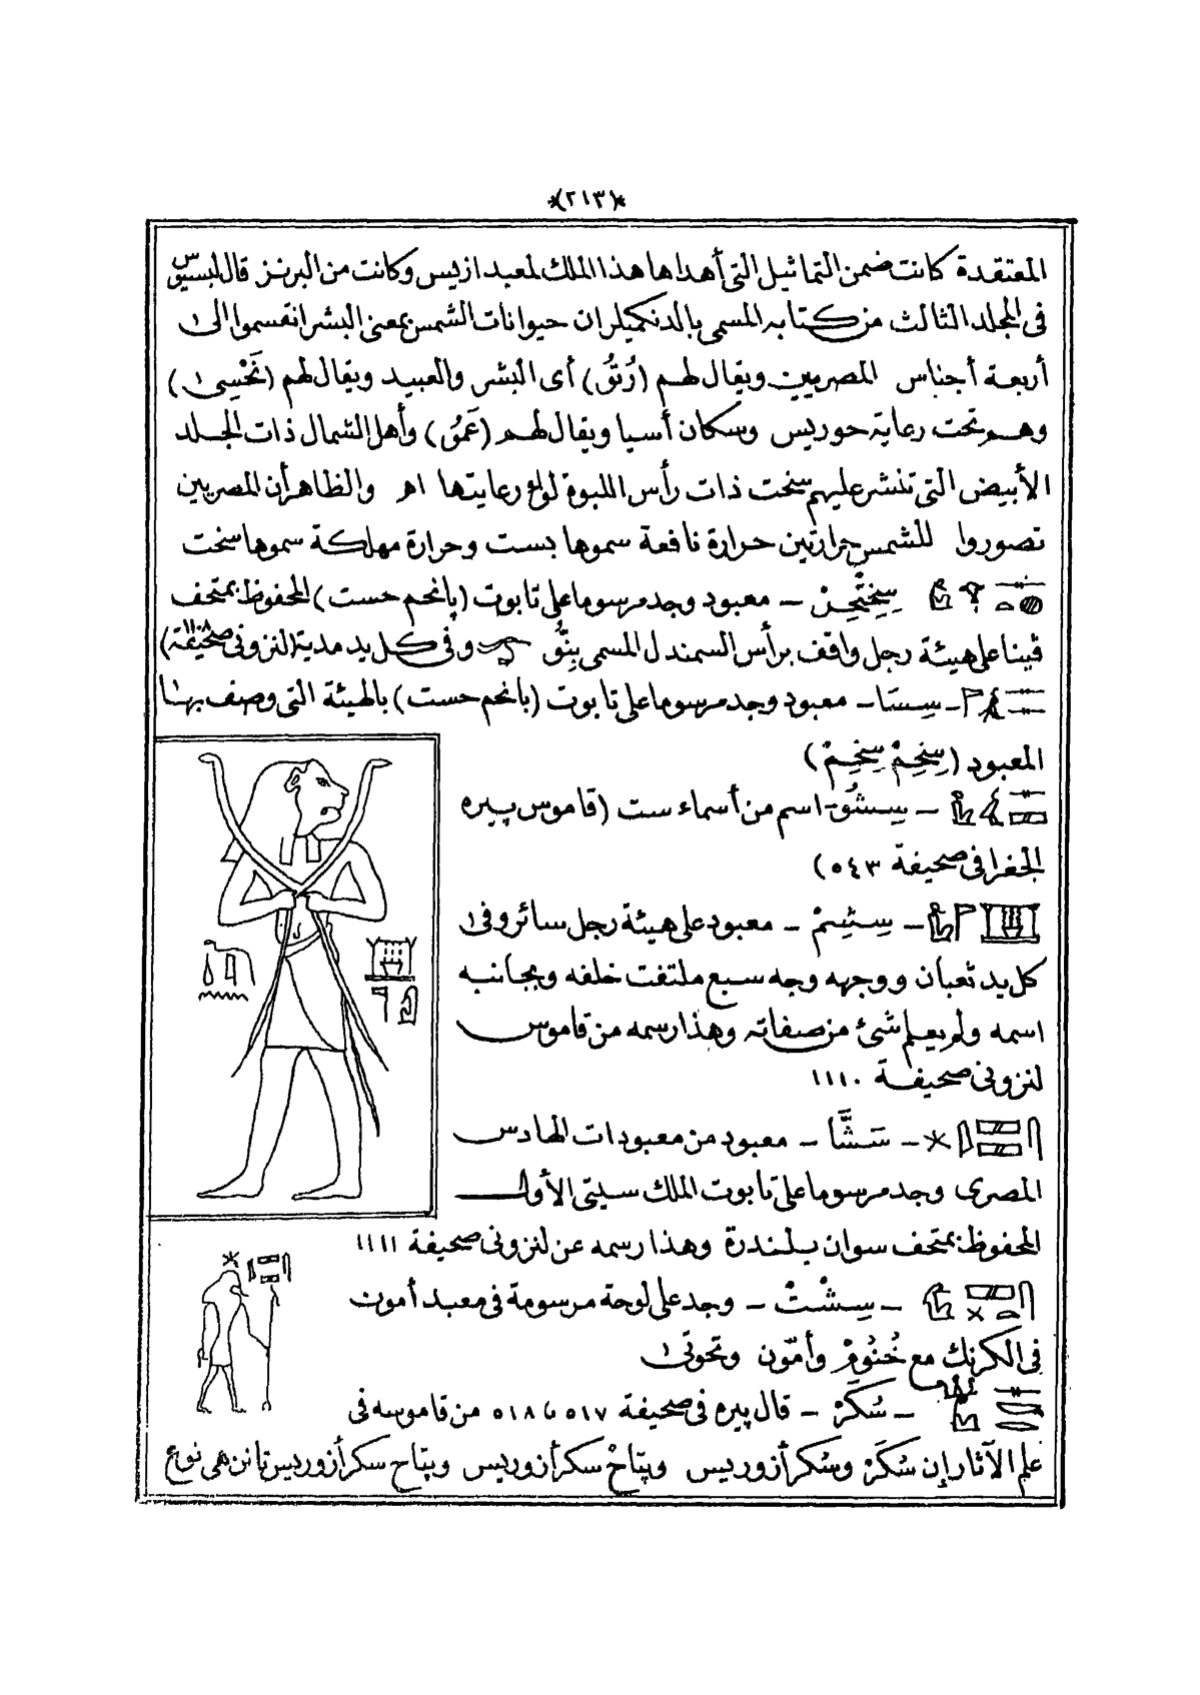 *(٢١٣)*
المعتقدة كانت ضمن التماثيل التى أهداها هذا الملك لمعبد ازيس وكانت من البرنز قال لبسيوس
فى المجلد الثالث من كتابه المسمى بالدنكميلر ان حيوانات الشمس بمعنى البشر انقسموا الى
أربعة أجناس المصريين ويقال لهم (رُتُو) أى البشر والعبيد ويقال لهم (نَحْسِى)
وهم تحت رعاية حوريس وسكان أسيا ويقال لهم (عَمُو) وأهل الشمال ذات الجلد
الأبيض التى تنشر عليهم سخت ذات رأس اللبوة لواء رعايتها اھ والظاهر أن المصريين
تصوروا للشمس حرارتين حرارة نافعة سموها بست وحرارة مهلكة سموها سخت
– معبود وجد مرسوما على تابوت (پانحم حست) المحفوظ بمتحف
ڤينا على هيئة رجل واقف برأس السمندل المسمى بِنُّو وفى كل يد مدية (لنزونى صحيفة ١١٠٨)
– سِسَا – معبود وجد مرسوما على تابوت (بانحم حست) بالهيئة التى وصف بها
المعبود (سِخِمْ سِخِمْ)
– سِشُو – اسم من أسماء ست (قاموس پيره
الجغرافى صحيفة ٥٤٣)
– سِشِمْ – معبود على هيئة رجل سائر وفى
كل يد ثعبان ووجهه وجه سبع ملتفت خلفه وبجانبه
اسمه ولم يعلم شئ من صفاته وهذا رسمه من قاموس
لنزونى صحيفة ١١١٠
– سَشَّا – معبود من معبودات الهادس
المصرى وجد مرسوما على تابوت الملك سيتى الأول
المحفوظ بمتحف سوان بلندرة وهذا رسمه عن لنزونى صحيفة ١١١١
– سِشْتْ – وجد على لوحة مرسومة فى معبد أمون
فى الكرنك مع خُنُومْ وأمون وتحوتى
– سُكَرْ – قال پيره فى صحيفة ٥١٧ و ٥١٨ من قاموسه فى
علم الآثار إن سُكَرْ وسُكر أزوريس وپتاحْ سكر أزوريس وپتاح سكر أزوريس تانن هى نوع